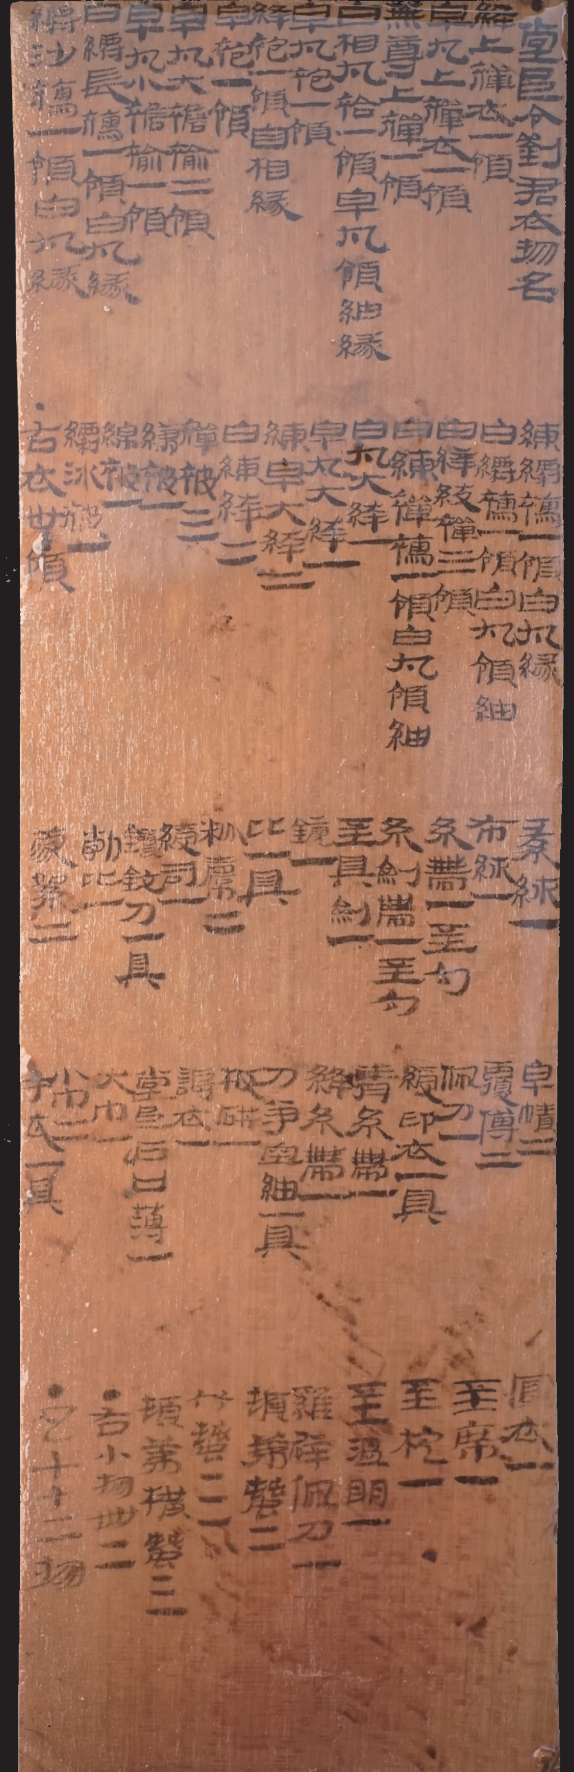 •堂邑令劉君衣物名
絳上襌衣一領
皁丸上襌衣一領
無尊上襌一領
白相丸袷一領皁丸領紬緣
皁丸袍一領
絳袍一領自相緣
皁袍一領
皁丸大襜褕二領
皁丸小襜褕一領
白縛長襦一領白丸緣
縛沙襦一領白丸緣
練縛襦一領白丸緣
白縛襦一領白丸領紬
襌三領
白練襌襦一領白丸領紬
白丸大絳一
皁丸大絳一
練皁大絳二
白練絳二
襌被二
縑被一
綿被一
縛沐被一
•右衣卅領
素絑一
布絑一
糸帶一玉勾
糸劍帶一玉勾
玉具劍一
鏡一
比一具
粉橐二
綬司一
鑷鈹刀一具
勒比一
蒙絮二
皁幘二
覆傅二
佩刀一
綬印衣一具
青糸帶一
絳糸帶一
刀紬一具
板研一
謁衣一
堂邑戶口薄一
大巾一
小巾二
手衣一具
衣一
玉席一
玉枕一
玉溫明一
佩刀一
簪二
竹簪二
橫簪三
•右小物卌二
•凡七十二物